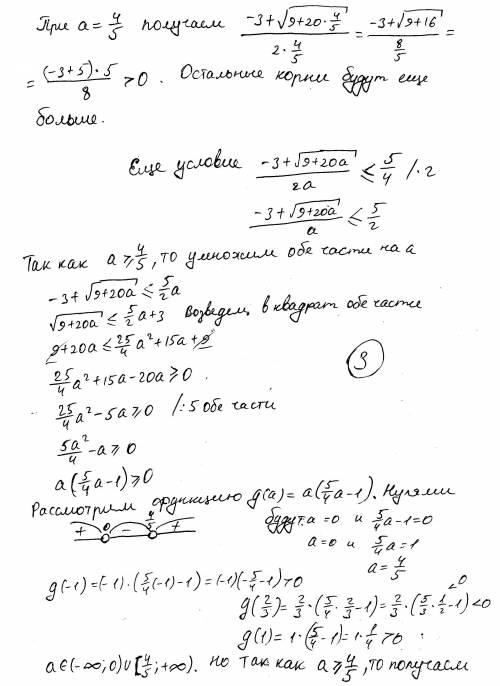 При a = 4/5 получаем (-3+√(9+20·4/5))/(2·4/5) = (-3+√(9+16))/(8/5) =
= ((-3+5)·5)/8 > 0. Остальные корни будут еще
больше.
Еще условие (-3+√(9+20a))/(2a) ≤ 5/4 /·2
(-3+√(9+20a))/a ≤ 5/2
Так как a ≥ 4/5, то умножим обе части на a
-3+√(9+20a) ≤ 5/2 a
√(9+20a) ≤ 5/2 a+3 Возведем в квадрат обе части
9+20a ≤ 25/4 a² + 15a + 9
25/4 a² + 15a - 20a ≥ 0
3
25/4 a² - 5a ≥ 0 /:5 обе части
5a²/4 - a ≥ 0
a(5/4 a - 1) ≥ 0
Рассмотрим функцию g(a) = a(5/4 a - 1). Нулями
+ 0 - 4/5 +
будут: a = 0 и 5/4 a - 1 = 0
a = 0 и 5/4 a = 1
a = 4/5
g(-1) = (-1)·(5/4(-1)-1) = (-1)(-5/4-1) > 0
g(2/3) = 2/3·(5/4·2/3-1) = 2/3·(5/3·1/2-1) < 0
<0
g(1) = 1·(5/4-1) = 1·1/4 > 0
a∈(-∞;0)∪[4/5;+∞). Но так как a ≥ 4/5, то получаем